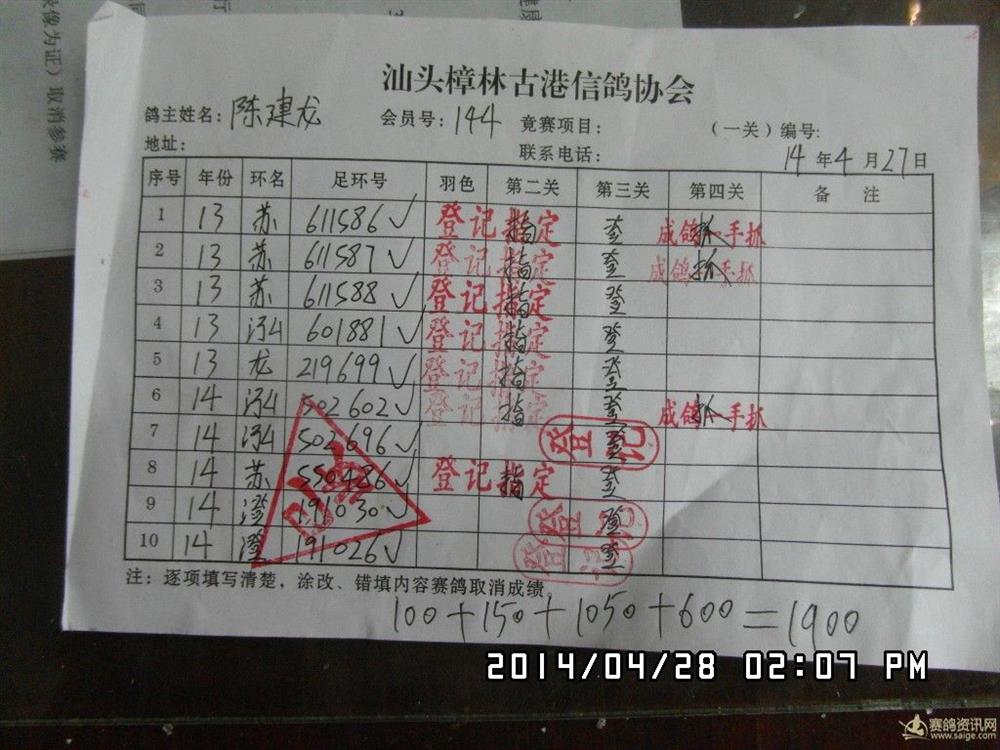 汕头樟林古港信鸽协会
鸽主姓名：陈建龙 会员号：144 竟赛项目： （一关）编号：
地址： 联系电话： 14年4月27日
序号 年份 环名 足环号 羽色 第二关 第三关 第四关 备 注
1 13 苏 611586√ 登记指定 指 登 成鸽一手抓 抓
2 13 苏 611587√ 登记指定 指 登 成鸽一手抓 抓
3 13 苏 611588√ 登记指定 指 登
4 13 601881√ 登记指定 指 登
5 13 龙 219699√ 登记指定 指 登
6 14 502602√ 登记指定 指 登 成鸽一手抓 抓
7 14 502696√ 登记 登
8 14 苏 550486√ 登记指定 指 登
9 14 澄 191030√ 登记 登
10 14 澄 191026√ 登记 登
注：逐项填写清楚，涂改、错填内容赛鸽取消成绩。
100+150+1050+600=1900
2014/04/28 02:07 PM
赛鸽资讯网
www.saige.com
像为证）取消参赛